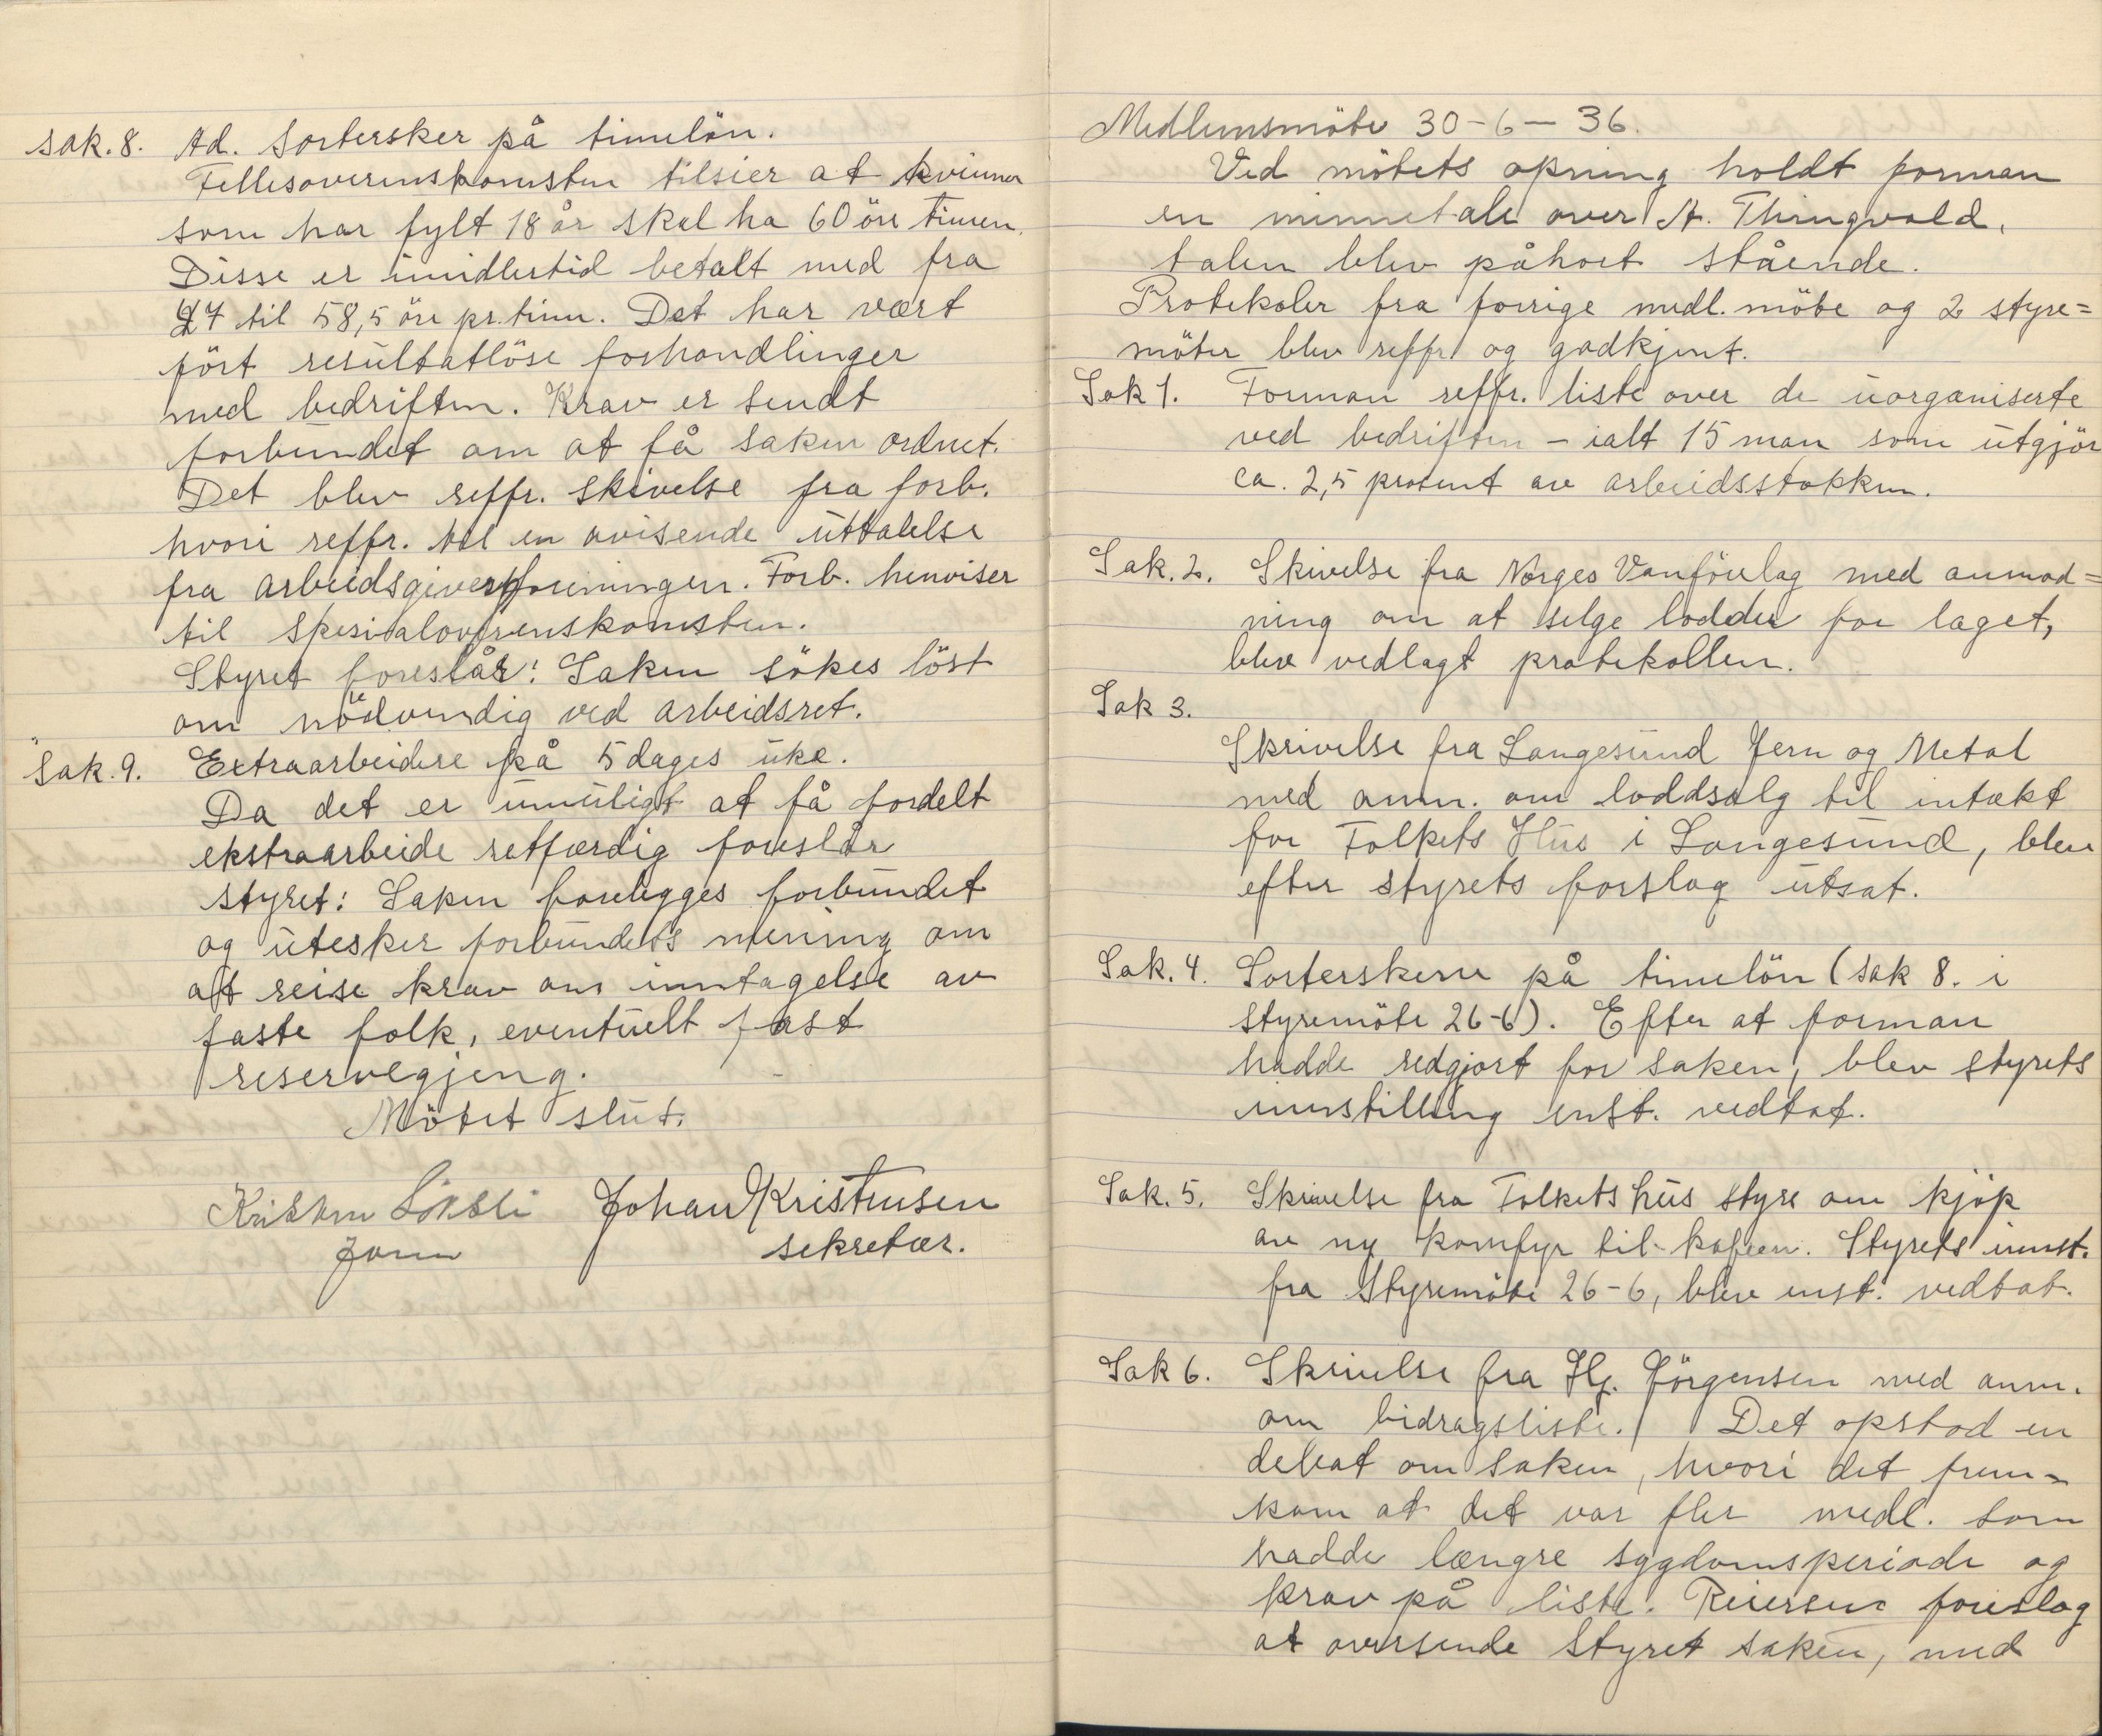 Sak. 8. Ad. Sortersker på timelön.
Fellesoverenskomsten tilsier at kvinner
som har fylt 18 år skal ha 60 öre timen.
Disse er imidlertid betalt med fra
27 til 58,5 öre pr. time. Det har vært
fört resultatlöse forhandlinger
med bedriften. Krav er sendt
forbundet om at få saken ordnet.
Det blev reffr. skivelse fra forb.
hvori reffr. til en avisende uttalelse
fra arbeidsgiverforeningen. Forb. henviser
til spesialoverenskomsten.
Styret foreslår: Saken sökes löst
om nödvendig ved arbeidsret.
Sak. 9. Extraarbeidere på 5 dages uke.
Da det er umuligt at få fordelt
ekstraarbeide retfærdig foreslår
styret: Saken forelegges forbundet
og utesker forbundets mening om
at reise krav om inntagelse av
faste folk, eventuelt fast
reservegjeng.
Mötet slut.
Kristen Johan Kristensen
form sekretær.
Medlemsmöte 30-6-36.
Ved mötets åpning holdt forman
en minnetale over A. Thingvold,
talen blev påhört stående.
Protokoler fra forrige medl. möte og 2 styre=
möter blev reffr. og godkjent.
Sak 1. Forman reffr. liste over de uorganiserte
ved bedriften - ialt 15 man som utgjör
ca. 2,5 protent av arbeidsstokken.
Sak. 2. Skivelse fra Norges Vanförelag med anmod=
ning om at selge lodder for laget,
blev vedlagt protokollen.
Sak 3.
Skrivelse fra Langesund Jern og Metal
med anm. om loddsalg til intækt
for Folkets Hus i Langesund, blev
efter styrets forslag utsat.
Sak. 4. Sorterskene på timelön (sak 8. i
styremöte 26-6). Efter at forman
hadde redgjort for saken, blev styrets
innstilling enst. vedtat.
Sak. 5. Skrivelse fra Folkets hus styre om kjöp
av ny komfyr til kafeen. Styrets innst.
fra styremöte 26-6, blev enst. vedtat.
Sak 6. Skrivelse fra Hj. Jörgensen med anm.
om bidragsliste. Det opstod en
debat om saken, hvori det frem=
kom at det var fler medl. som
hadde længre sygdomsperiode og
krav på liste. Reiersen foreslog
at oversende styret saken, med